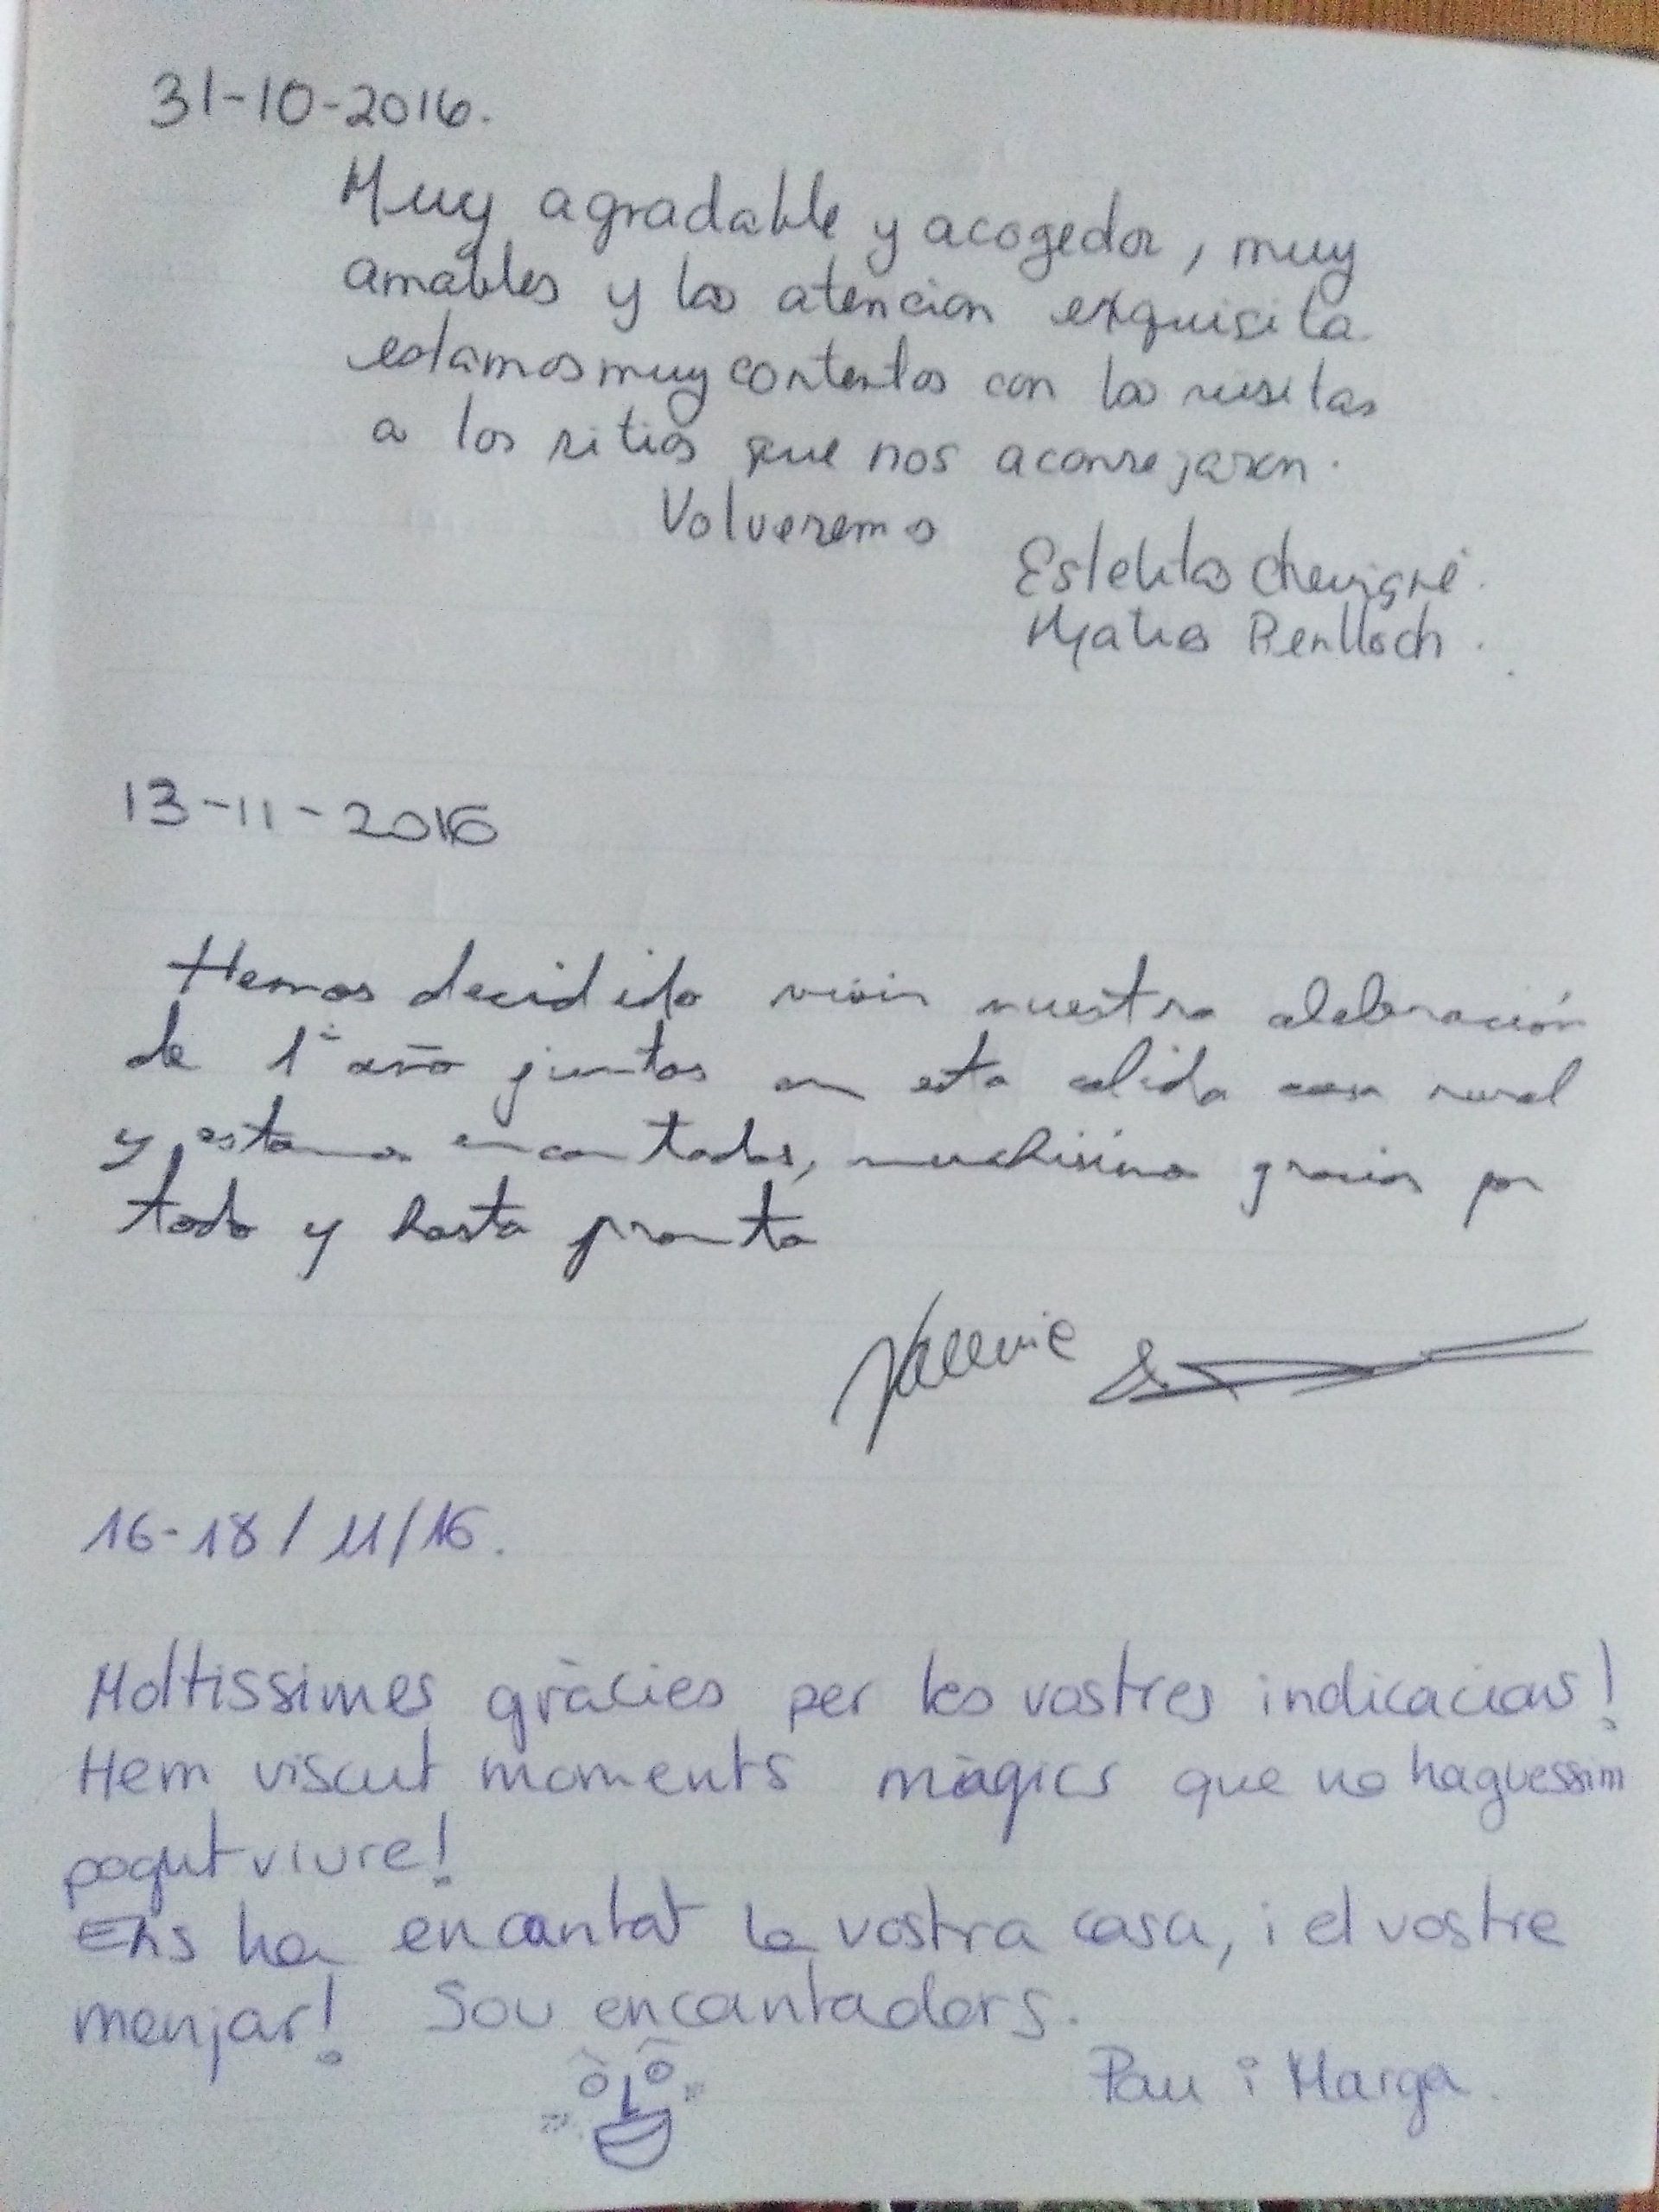 31-10-2016.
Muy agradable y acogedor, muy
amables y la atencion exquisita
estamos muy contentos con las visitas
a los sitios que nos aconsejaron.
Volveremos
Chevigné.
Matias Benlloch.
13-11-2016
Hemos decidido vivir nuestra celebración
de 1º año juntos en esta calida casa rural
y estamos encantados, muchisimas gracias por
todo y hasta pronto
16-18/11/16.
Moltissimes gràcies per les vostres indicacions!
Hem viscut moments màgics que no haguessim
pogut viure!
Ens ha encantat la vostra casa, i el vostre
menjar! Sou encantadors.
Pau i Marga.